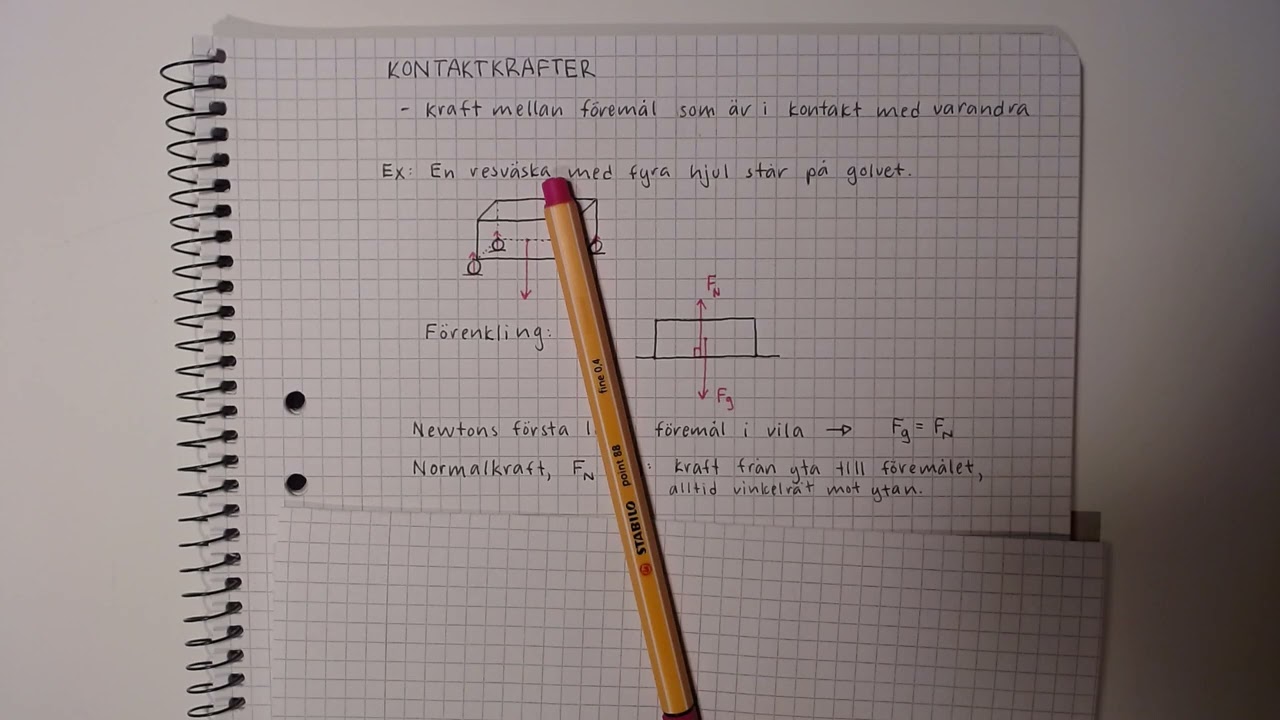 KONTAKTKRAFTER
- kraft mellan föremål som är i kontakt med varandra
Ex: En resväska med fyra hjul står på golvet.
F_N
Förenkling:
F_g
Newtons första l föremål i vila → F_g = F_N
Normalkraft, F_N : kraft från yta till föremålet,
alltid vinkelrät mot ytan.
STABILO point 88 fine 0,4